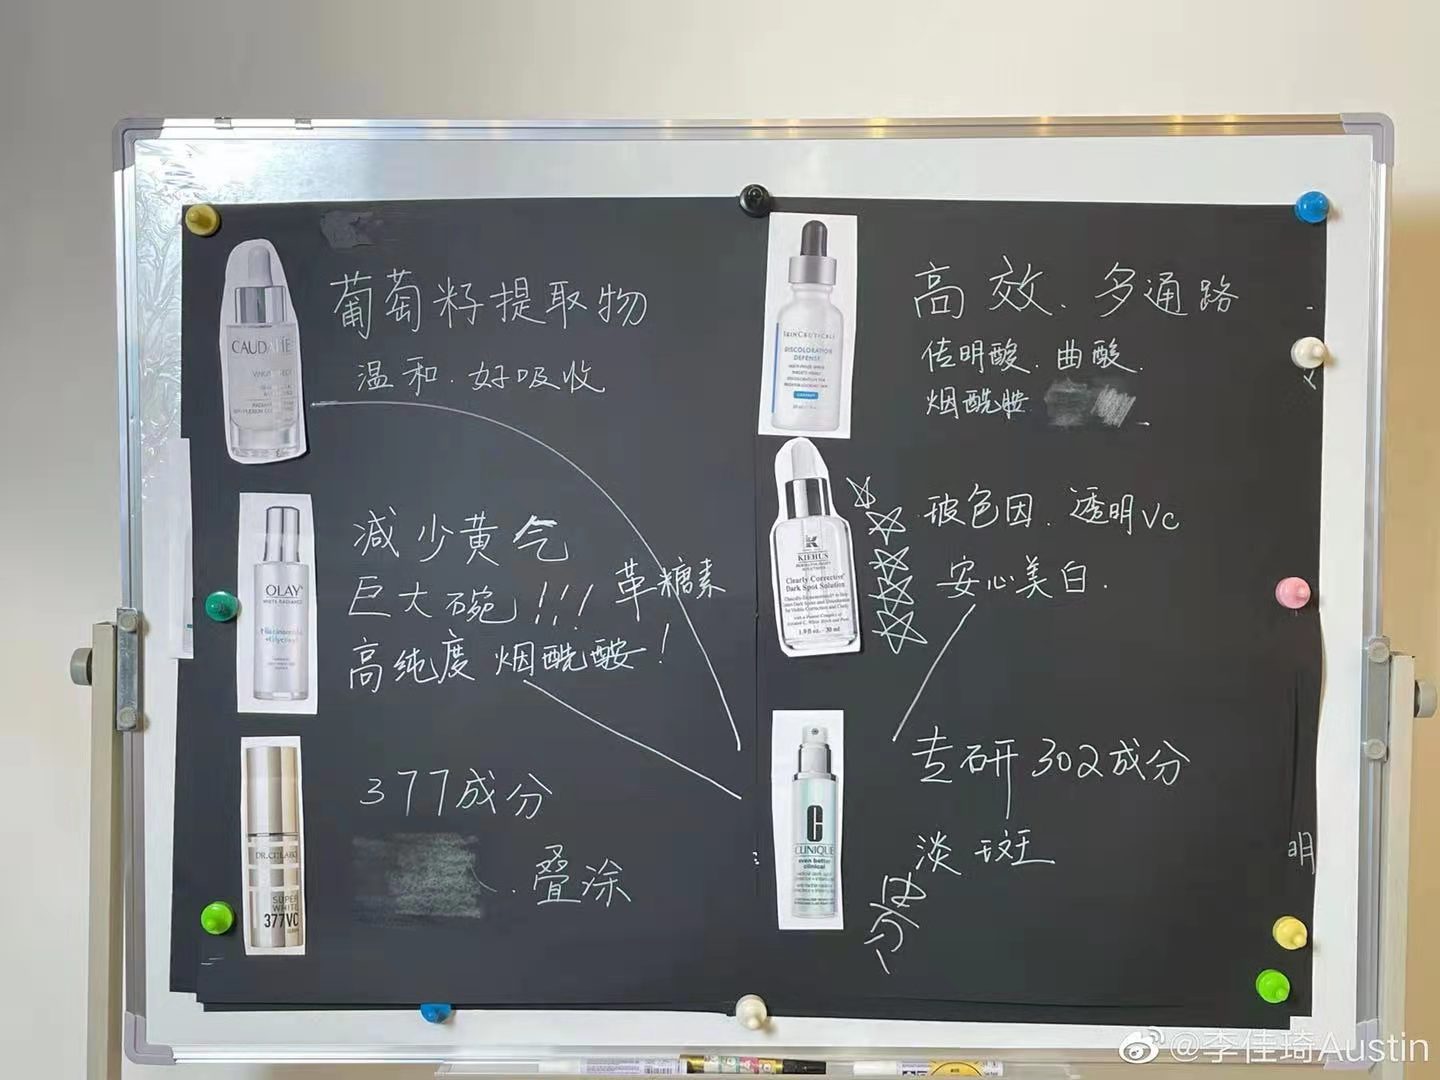 CAUDALIE
葡萄籽提取物
温和.好吸收
OLAY
WHITE RADIANCE
减少黄气
巨大碗!!! 革糖素
高纯度 烟酰酸!
DR.CI:LABO
SUPER
WHITE
377VC
377成分
叠涂
SKINCEUTICALS
DISCOLORATION
DEFENSE
高效.多通路
传明酸.曲酸.
烟酰胺
K
KIEHL'S
Clearly Corrective
Dark Spot Solution
1.0 fl.oz. - 30 ml
玻色因.透明VC
安心美白.
C
CLINIQUE
even better
clinical
专研302成分
淡斑
明
@李佳琦Austin